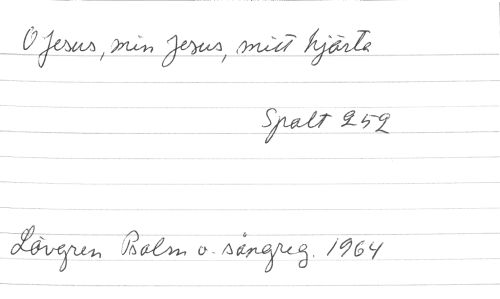 O Jesus, min Jesus, mitt hjärta
Spalt 252
Lövgren Psalm o. sångreg. 1964